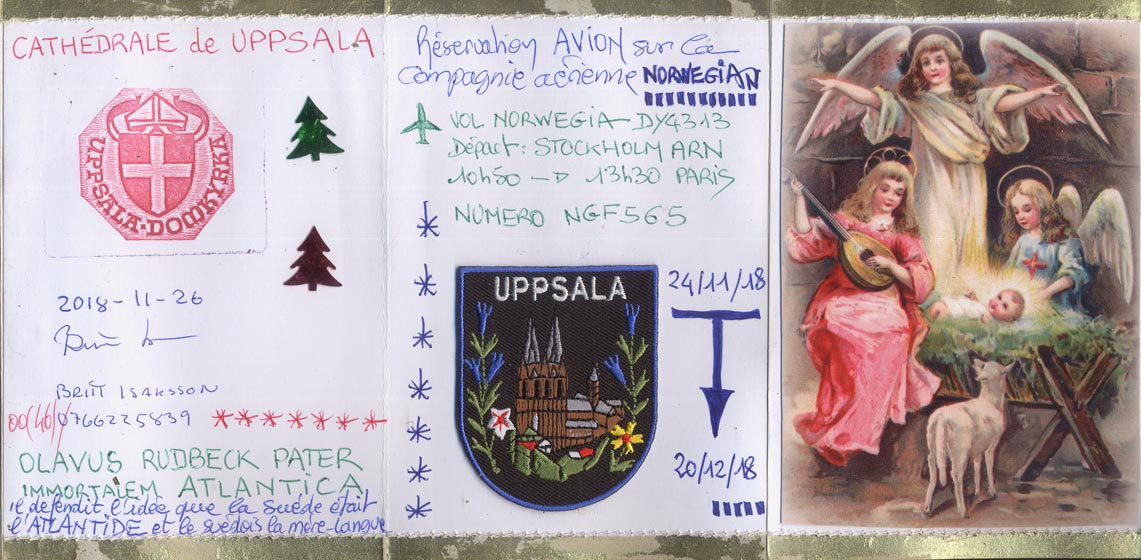 CATHÉDRALE de UPPSALA
UPPSALA·DOMKYRKA
2018-11-26
BRITT ISAKSSON
00(46)/0766225839
OLAVUS RUDBECK PATER
IMMORTALEM ATLANTICA
il défendit l'idée que la Suède était
l'ATLANTIDE et le suédois la mère-langue
Réservation AVION sur la
Compagnie aérienne NORWEGIAN
VOL NORWEGIA- DY4313
Départ: STOCKHOLM ARN
10h50 → 13h30 PARIS
NUMERO NGF565
UPPSALA
24/11/18
20/12/18